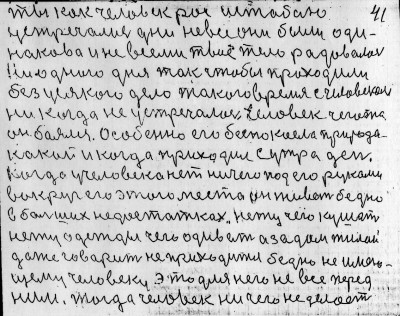 41
ты как человек рос и штабею
устречаме дни невсе они были оди-
накова и не всеми твое тело радовалос
Ни одного дня так чтобы приходили
без усякого дело такого время с человеком
ни когда не устречалос. Человек чегота
он баялся. Особенно его беспокоела природа-
какой и когда приходил с утра ден.
Когда у человека нет ничего под его руками
вокруг его этого места он живет бедно
в больших недостатках, нету чего кушать
нету одежды чего одивать а за дом жилой
даже говорить не приходится бедно не имею-
щему человеку это для него не все перед
ним. Тогда человек ничего не делает